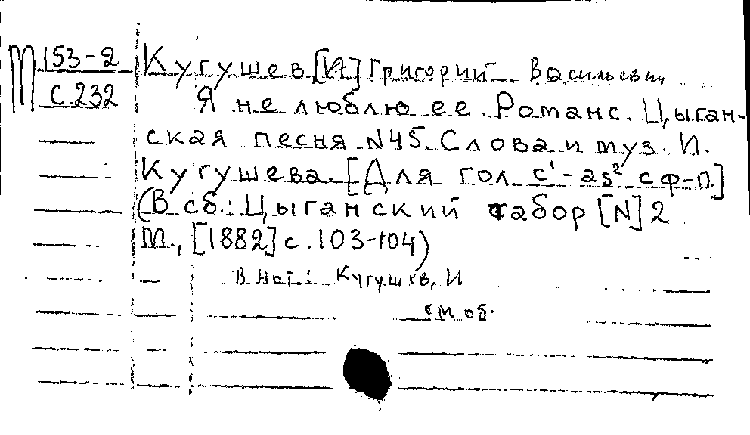 М 153-2
С 232
Кугушев [И] Григорий Васильевич
Я не люблю ее. Романс. Цыган-
ская песня N45. Слова и муз. И.
Кугушева. [Для гол. c¹-as² с ф-п.]
(В сб.: Цыганский табор [N] 2
М., [1882] с. 103-104)
В нот.: Кугушев, И
см об.